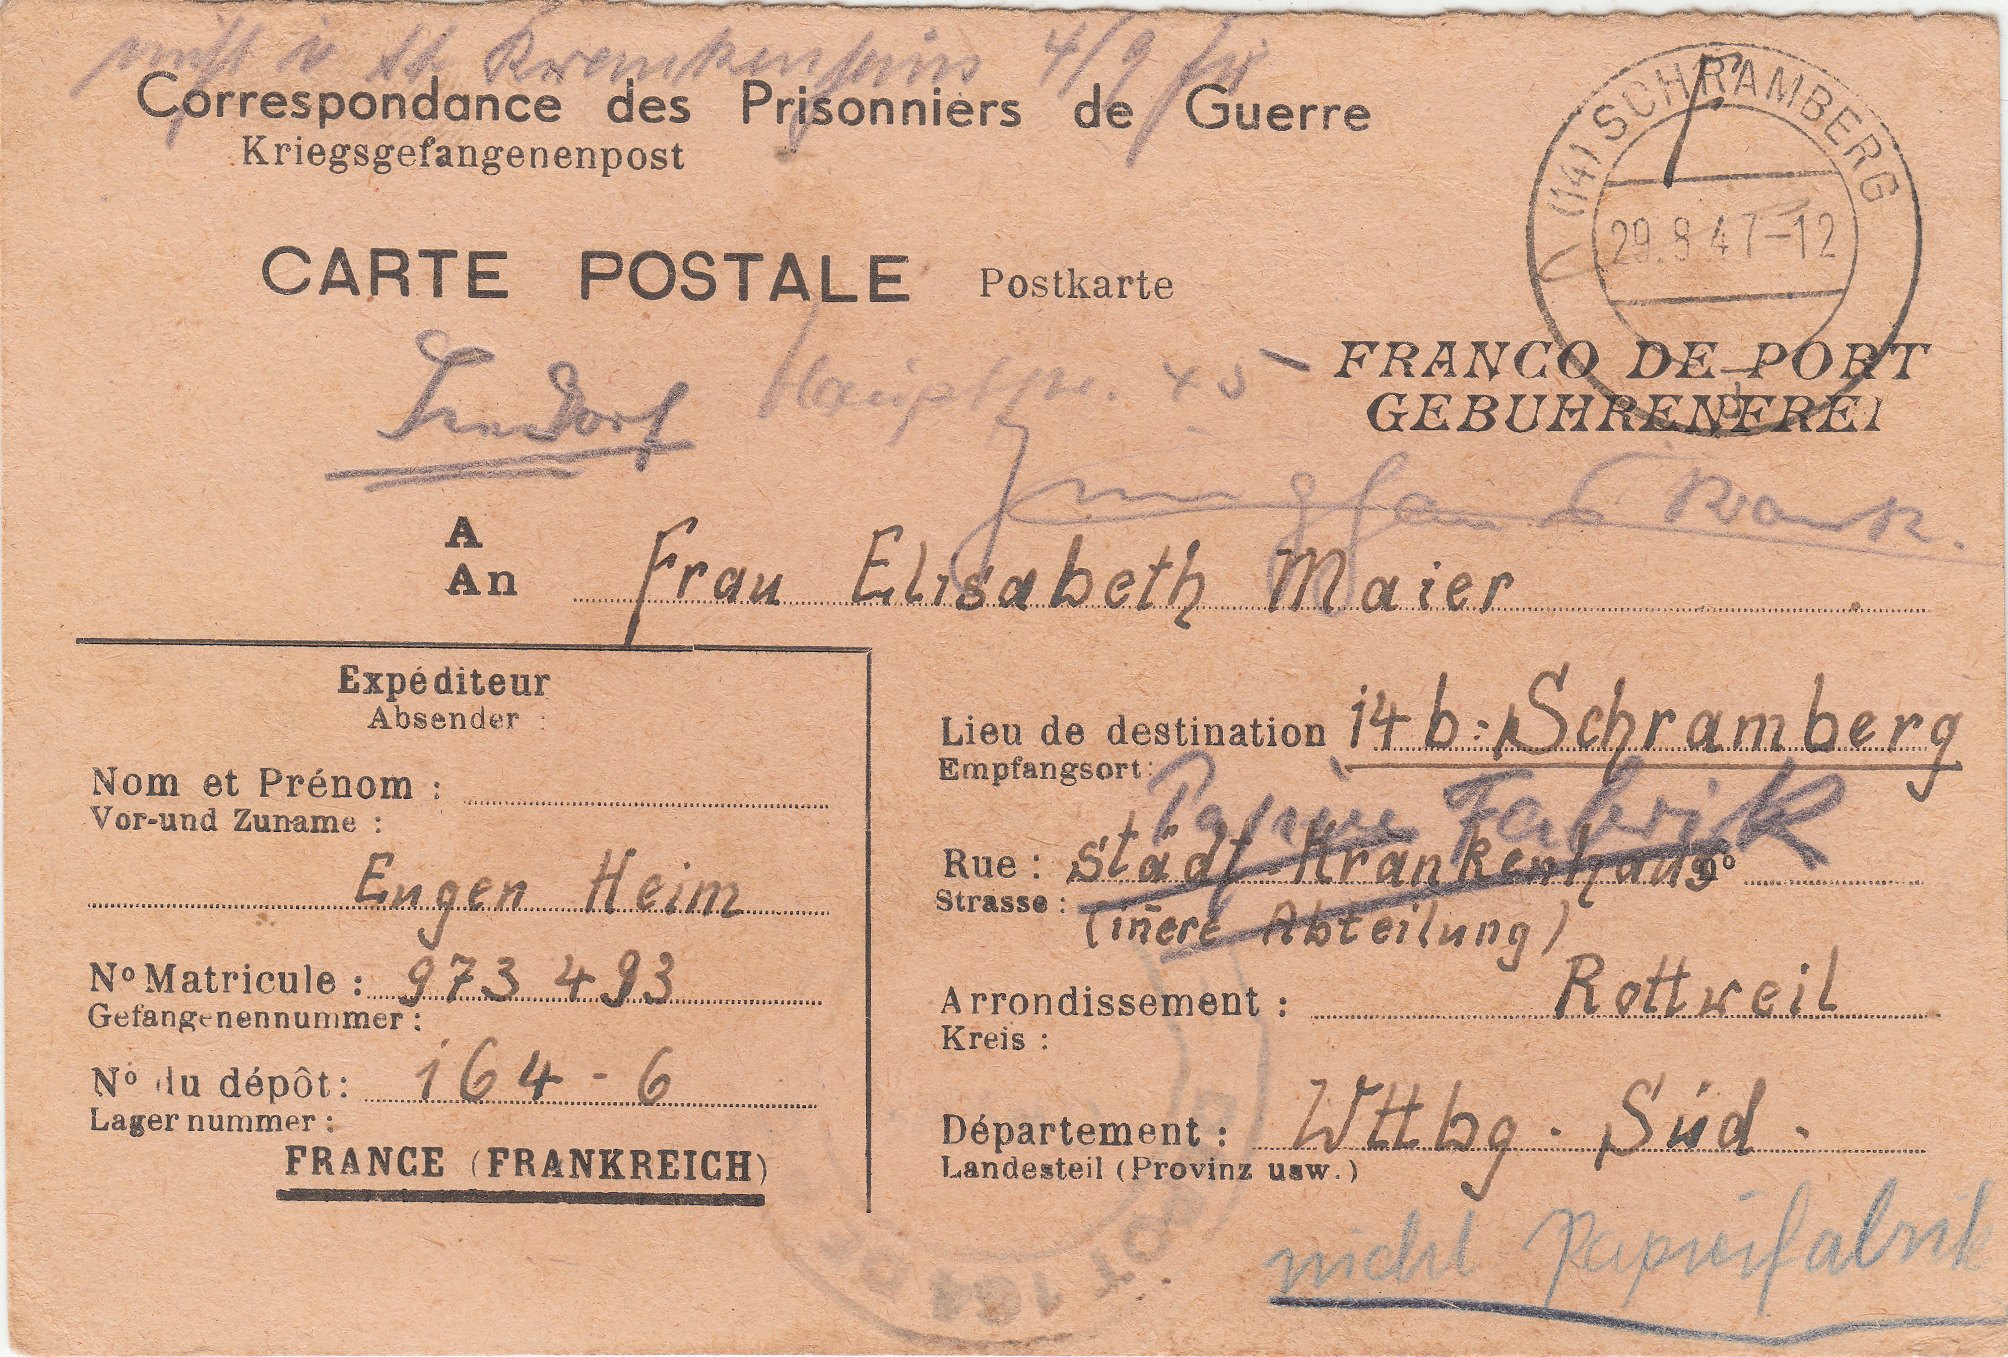 nicht i. st. Krankenhaus 4/9
Correspondance des Prisonniers de Guerre
Kriegsgefangenenpost
(14) SCHRAMBERG
29.8.47-12
CARTE POSTALE Postkarte
FRANCO DE PORT
GEBUHRENFREI
Hauptstr. 45
A
An Frau Elisabeth Maier
Expéditeur
Absender :
Nom et Prénom :
Vor-und Zuname :
Eugen Heim
No Matricule : 973 493
Gefangenennummer :
No du dépôt : 164 - 6
Lagernummer :
FRANCE (FRANKREICH)
Lieu de destination 14 b: Schramberg
Empfangsort:
Papier Fabrik
Rue : städt. Krankenhaus no
Strasse :
(iñere Abteilung)
Arrondissement : Rottweil
Kreis :
Département : Wttbg. Süd.
Landesteil (Provinz usw.)
nicht Papierfabrik
DÉPOT 164 DE